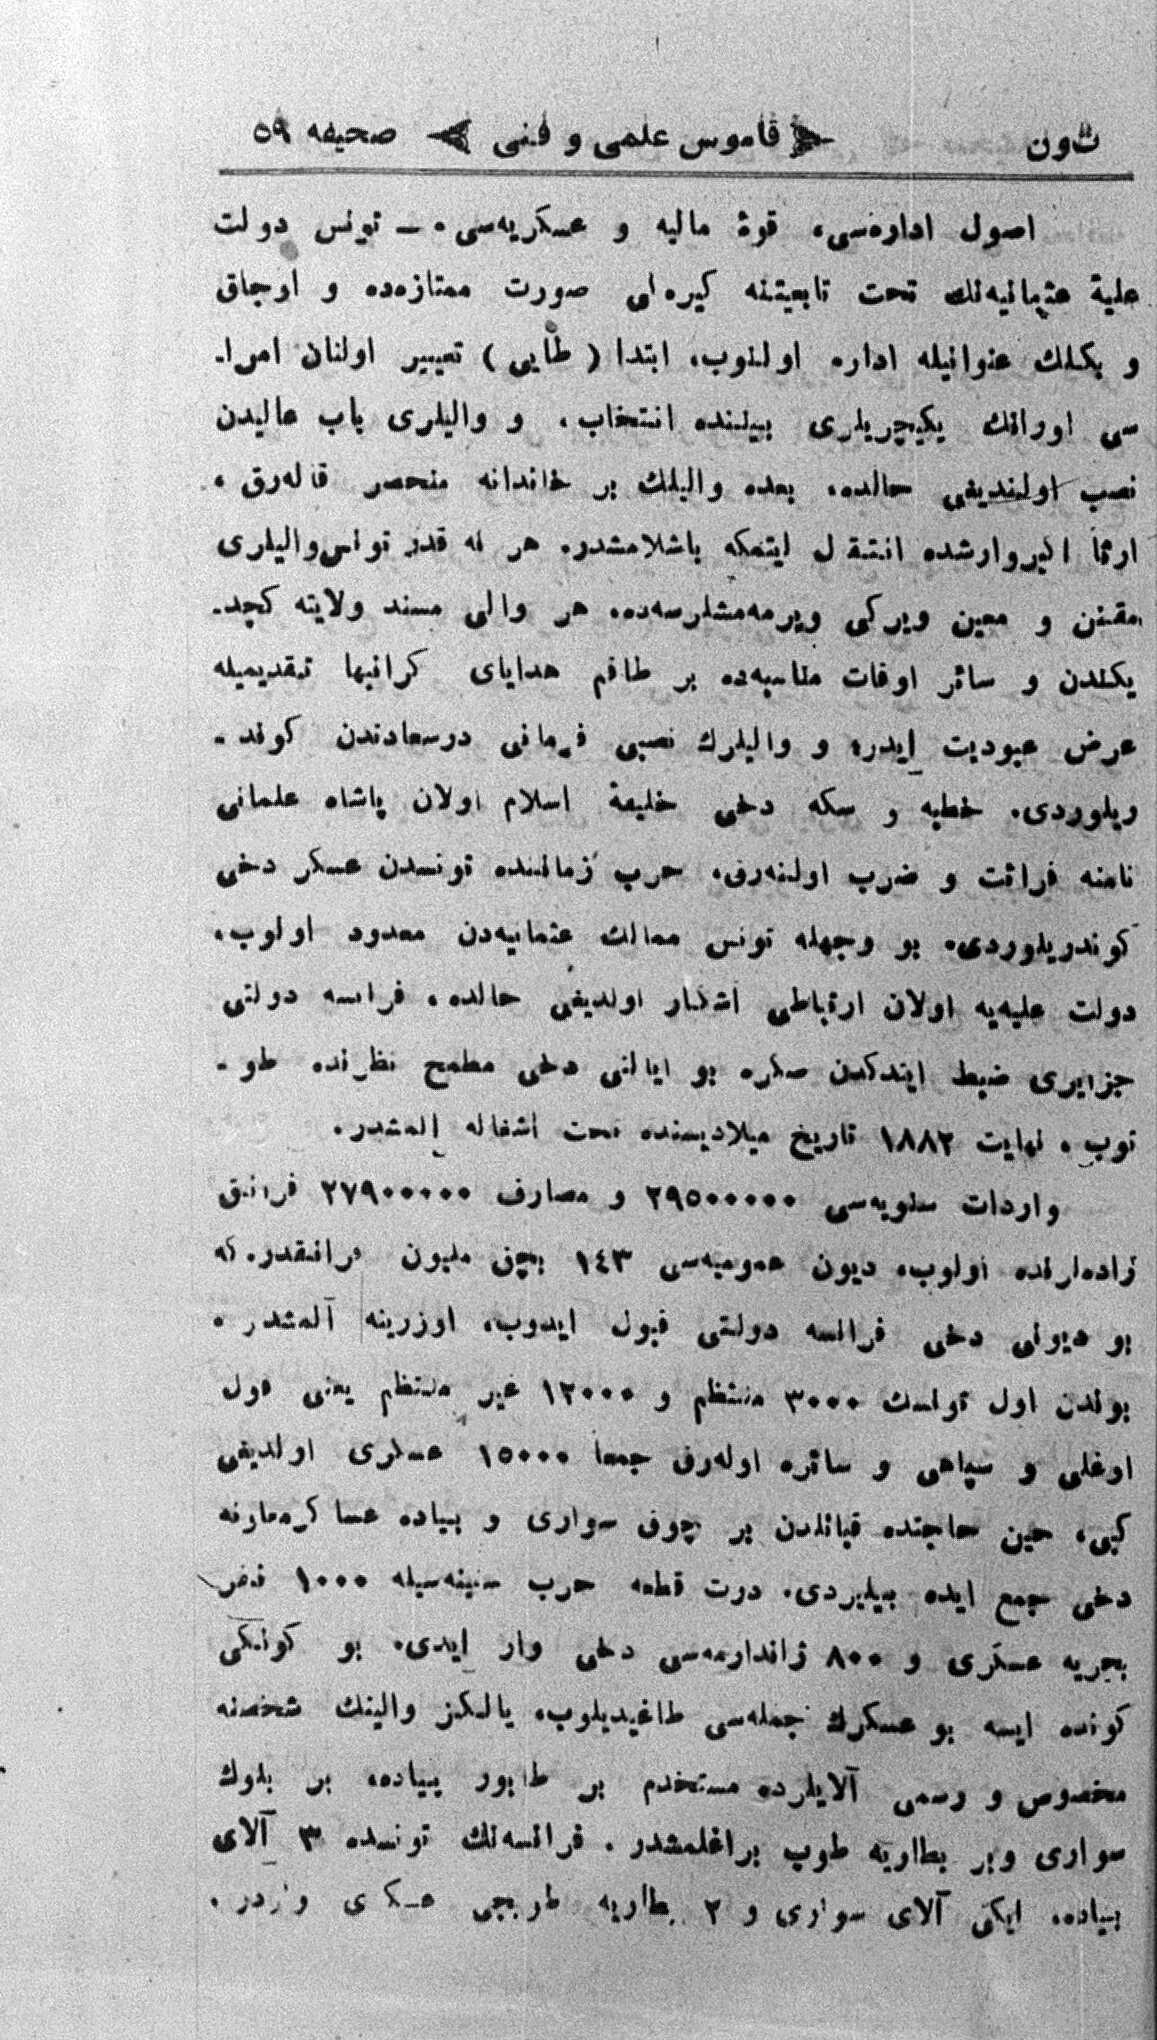 تون قاموس علمی و فنی صحیفه ٥٩
اصول اداره‌سی، قوهٔ مالیه و عسکریه‌سی. — تونس دولت
علیهٔ عثمانیه‌نك تحت تابعیتنه کیره‌لی صورت ممتازه‌ده و اوجاق
و بکلك عنوانیله اداره اولنوب، ابتدا (طایی) تعبیر اولنان امرا-
سی اورانك یکیچریلری بیننده انتخاب، و والیلری باب عالیدن
نصب اولندیغی حالده، بعده والیلك بر خاندانه منحصر قاله‌رق،
ارثاً الیروارشده انتقال ایتمکه باشلامشدر. هر نه قدر تونس والیلری
مقنن و معین ویرکی ویرمه‌مشلرسه‌ده، هر والی مسند ولایته کچد-
یکندن و سائر اوقات مناسبه‌ده بر طاقم هدایای کرانبها تقدیمیله
عرض عبودیت ایدر، و والیلرك نصبی فرمانی درسعادتدن کوند-
ریلوردی. خطبه و سکه دخی خلیفهٔ اسلام اولان پادشاه عثمانی
نامنه قرائت و ضرب اولنه‌رق، حرب زماننده تونسدن عسکر دخی
کوندریلوردی. بو وجهله تونس ممالك عثمانیه‌دن معدود اولوب،
دولت علیه‌یه اولان ارتباطی آشکار اولدیغی حالده، فرانسه دولتی
جزایری ضبط ایتدکدن صکره بو ایالتی دخی مطمح نظرنده طو-
توب، نهایت ١٨٨٢ تاریخ میلادیسنده تحت اشغاله المشدر.
واردات سنویه‌سی ٢٩٥٠٠٠٠٠ و مصارف ٢٧٩٠٠٠٠٠ فرانق
راده‌لرنده اولوب، دیون عمومیه‌سی ١٤٣ بچق ملیون فرانقدر. که
بو دیونی دخی فرانسه دولتی قبول ایدوب، اوزرینه آلمشدر.
بوندن اول تونسك ٣٠٠٠ منتظم و ١٢٠٠٠ غیر منتظم یعنی قول
اوغلی و سپاهی و سائره اوله‌رق جمعاً ١٥٠٠٠ عسکری اولدیغی
کبی، حین حاجتده قبائلدن بر چوق سواری و پیاده عساکر معاونه
دخی جمع ایده بیلیردی. درت قطعه حرب سفینه‌سیله ١٠٠٠ نفر
بحریه عسکری و ٨٠٠ ژاندارمه‌سی دخی وار ایدی. بو کونکی
کونده ایسه بو عسکرك جمله‌سی طاغیدیلوب، یالکز والینك شخصنه
مخصوص و رسمی آلایلرده مستخدم بر طابور پیاده، بر بلوك
سواری و بر بطاریه طوپ براغلمشدر. فرانسه‌نك تونسده ٣ آلای
پیاده، ایکی آلای سواری و ٢ بطاریه طوپچی عسکری واردر.